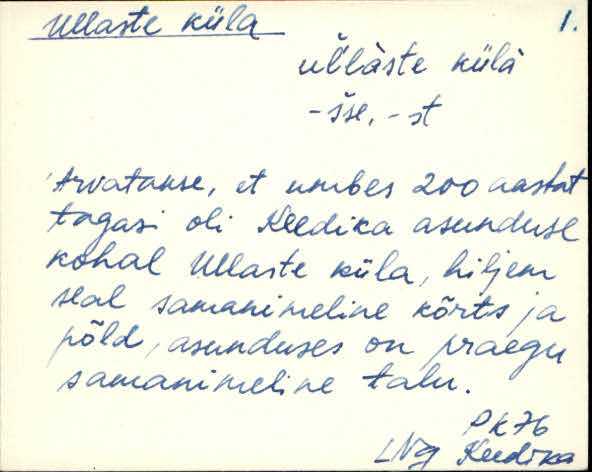 Ullaste küla 1.
ul̆làste külà
-šse, -st
Arvatakse, et umbes 200 aastat
tagasi oli Keedika asunduse
kohal Ullaste küla, hiljem
seal samanimeline kõrts ja
põld, asunduses on praegu
samanimeline talu.
PK76
LNg Keedika